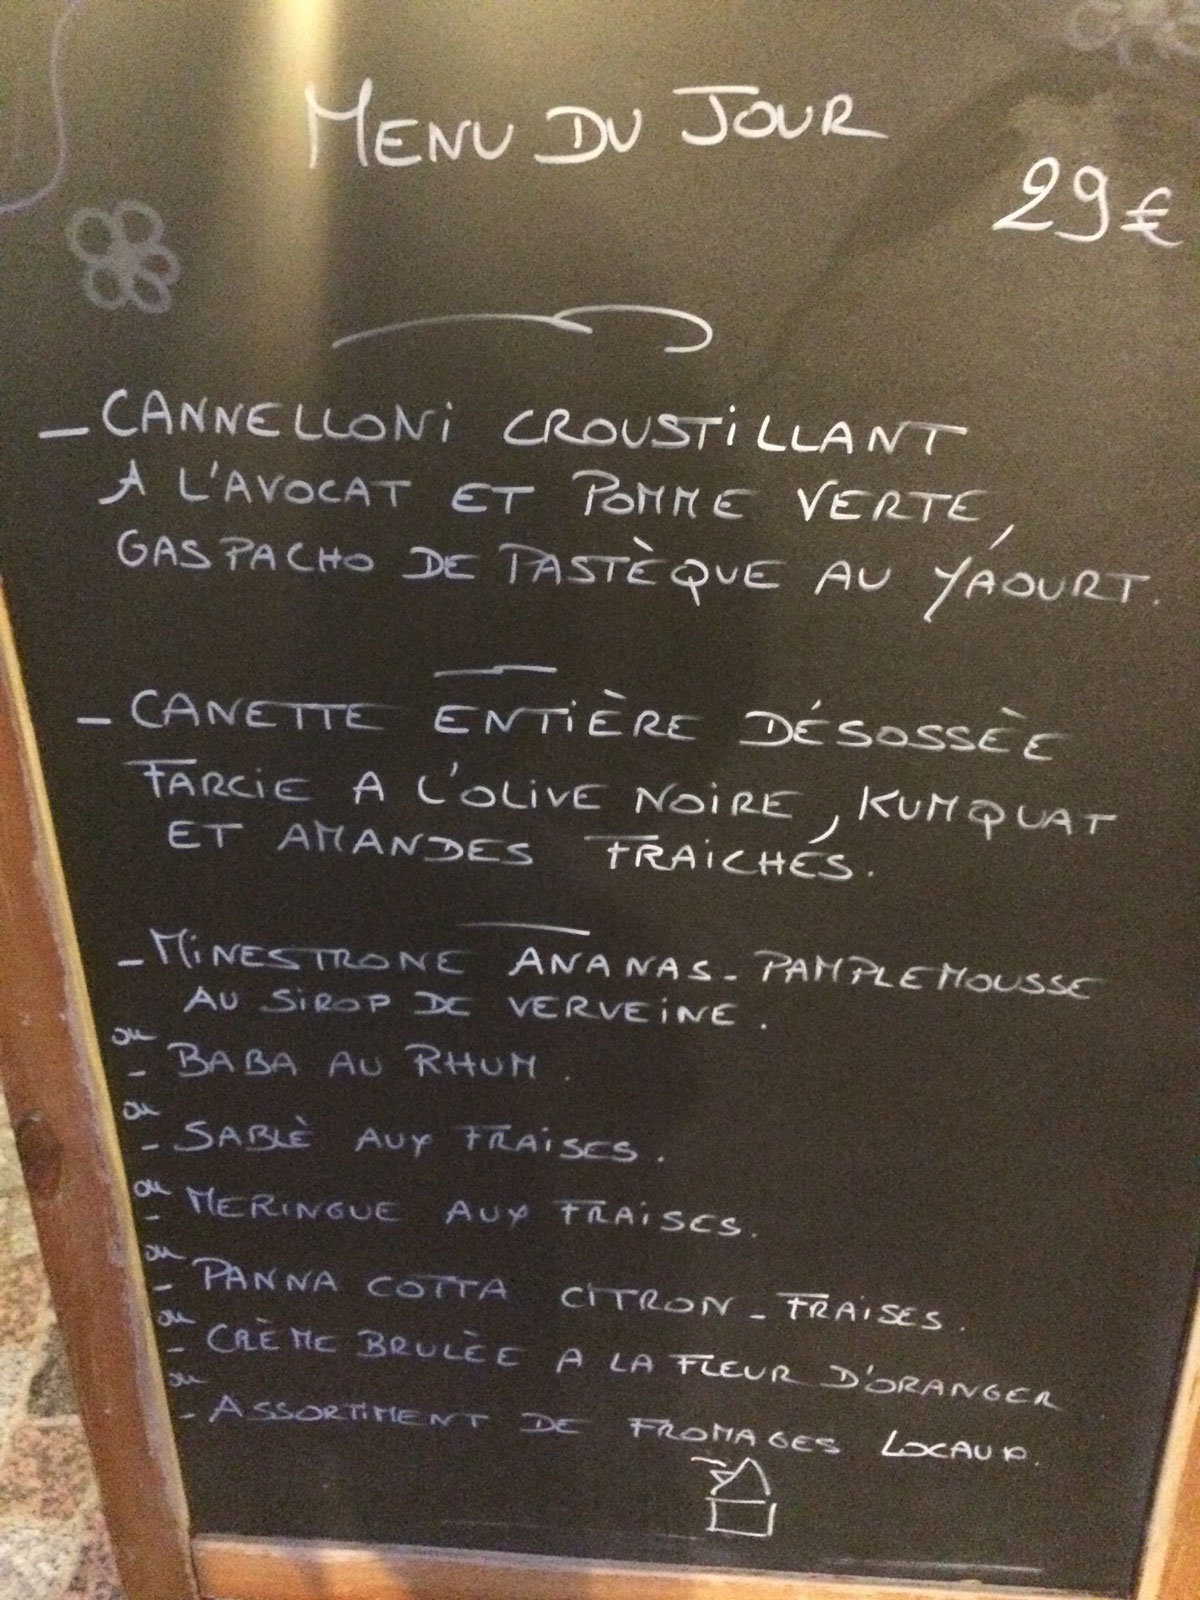 MENU DU JOUR
29€
- CANNELLONI CROUSTILLANT
A L'AVOCAT ET POMME VERTE,
GASPACHO DE PASTÈQUE AU YAOURT.
- CANETTE ENTIÈRE DÉSOSSÈE
FARCIE A L'OLIVE NOIRE, KUMQUAT
ET AMANDES FRAICHES.
- MINESTRONE ANANAS-PAMPLEMOUSSE
AU SIROP DE VERVEINE.
ou
- BABA AU RHUM.
ou
- SABLÈ AUX FRAISES.
ou
- MERINGUE AUX FRAISES.
ou
- PANNA COTTA CITRON-FRAISES.
ou
- CRÈME BRULÈE A LA FLEUR D'ORANGER
ou
- ASSORTIMENT DE FROMAGES LOCAUX.